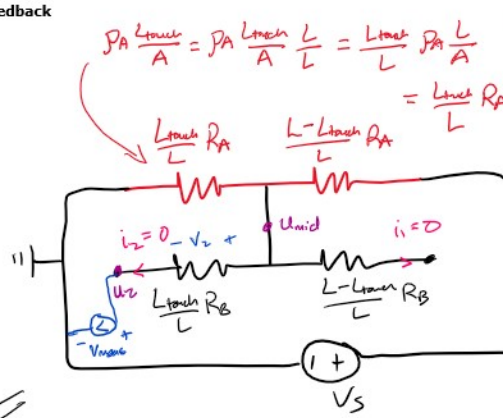 edback
ρA Ltouch/A = ρA Ltouch/A L/L = Ltouch/L ρA L/A
= Ltouch/L RA
Ltouch/L RA
L-Ltouch/L RA
Umid
i2=0
- V2 +
i1=0
U2
Ltouch/L RB
L-Ltouch/L RB
- +
Vmeas
- +
Vs